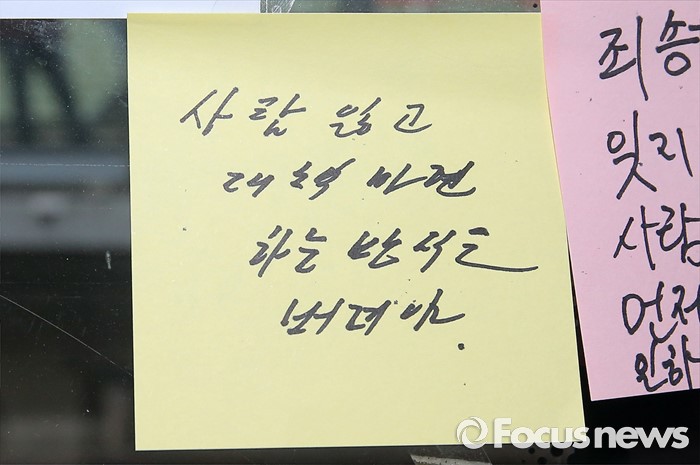 사람 잃고
대책 마련
하는 방식는
버려야.
죄송
잊지
사람
언제
원하
Focusnews